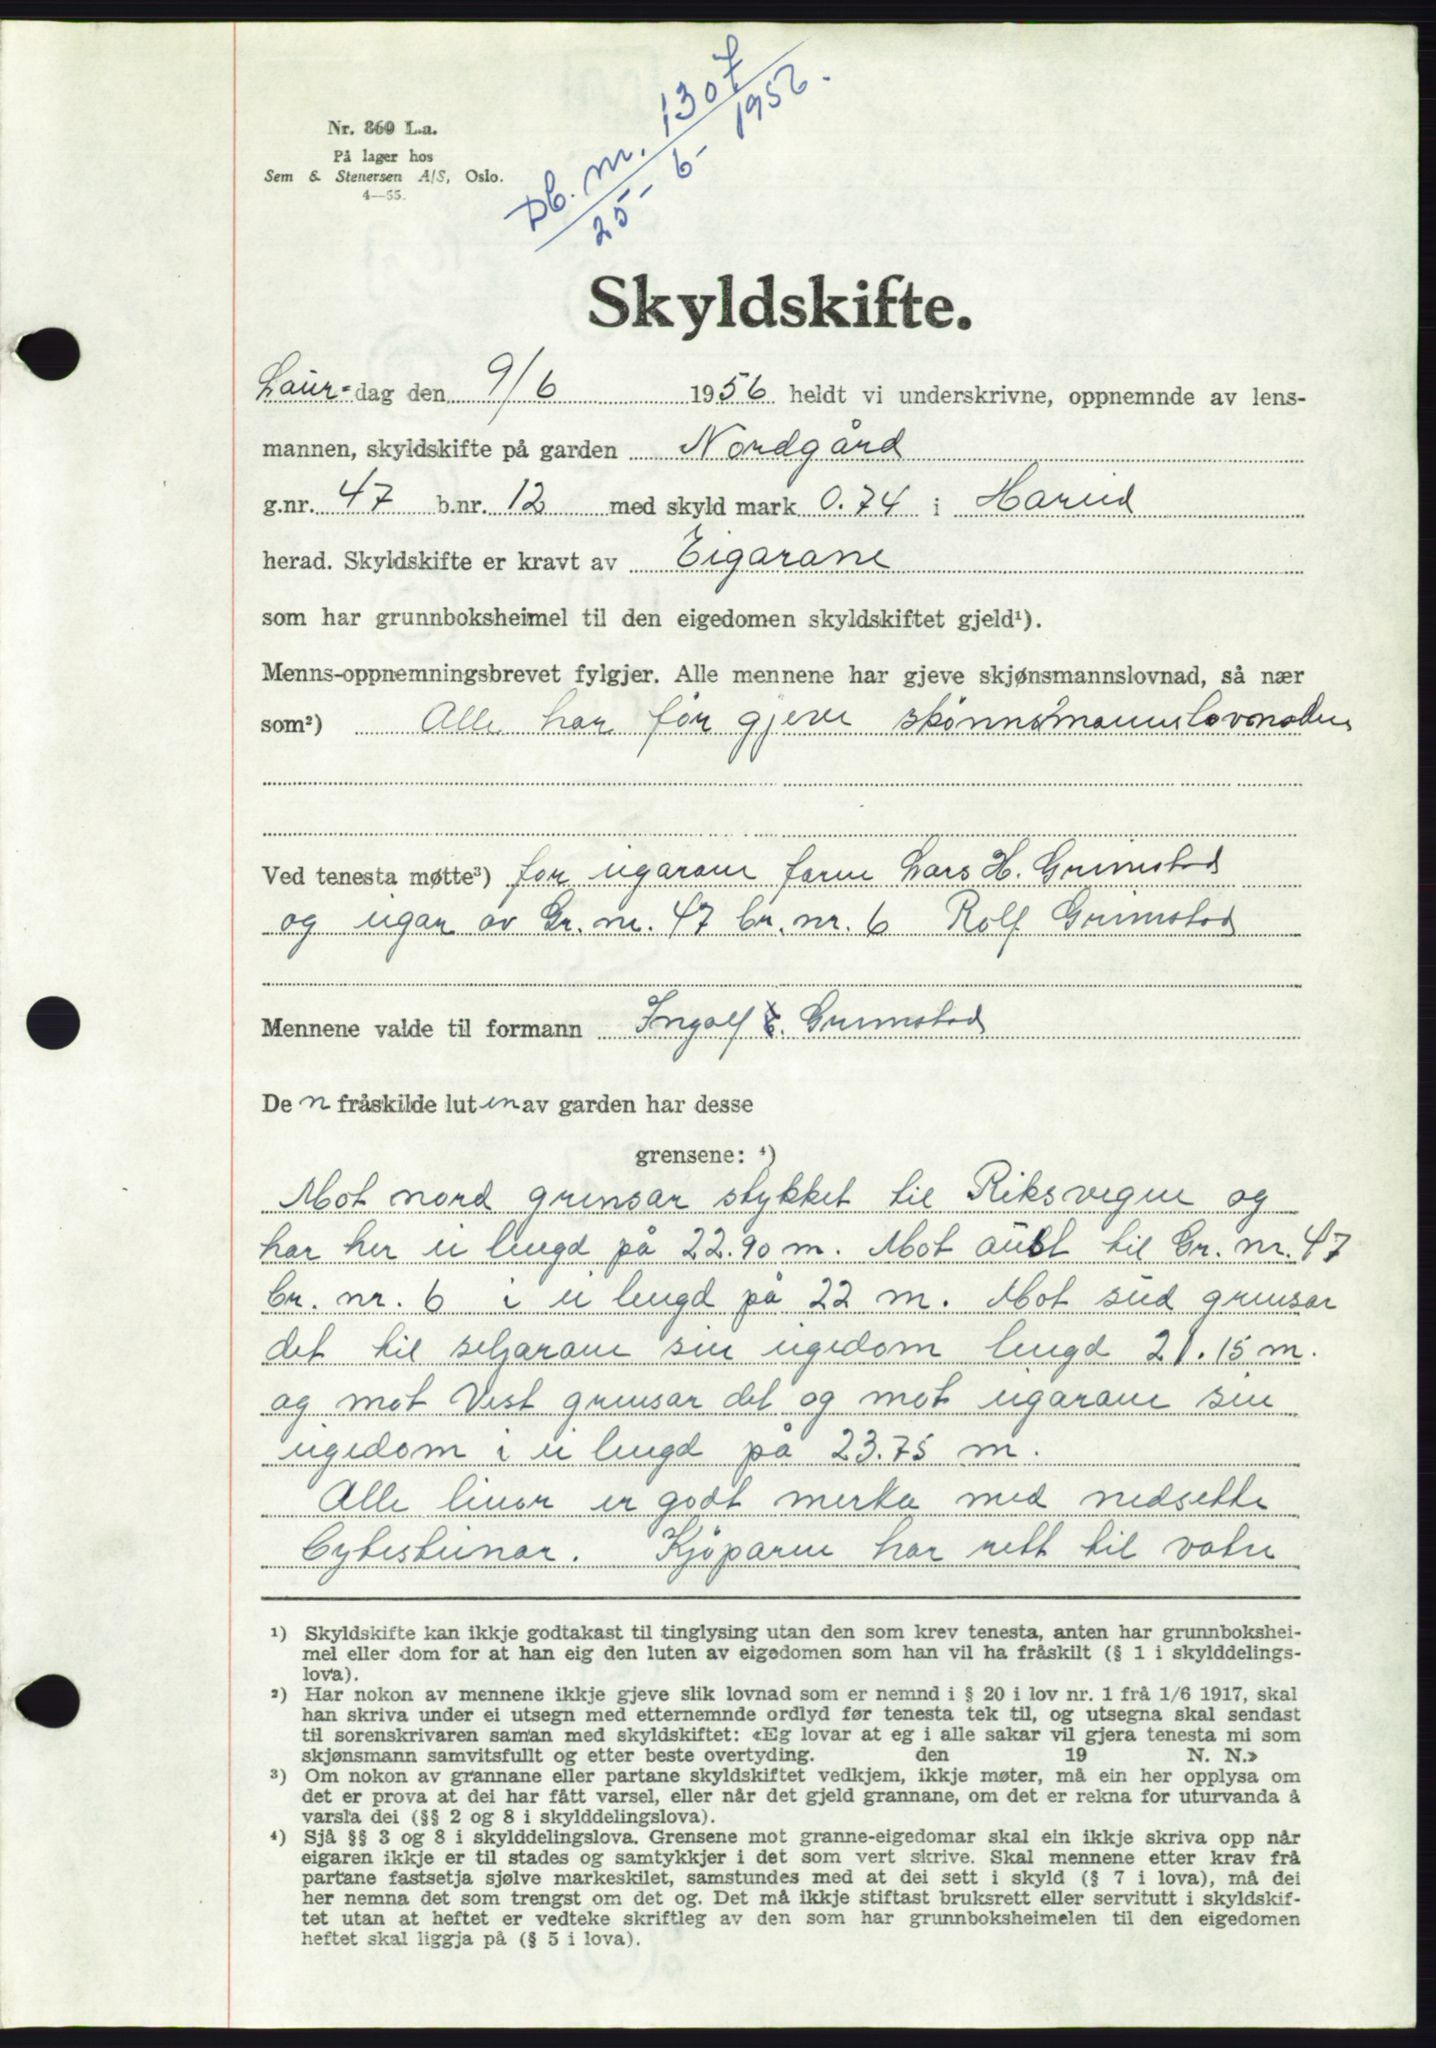 Db. nr. 1307
25-6-1956.
Nr. 860 L.a.
På lager hos
Sem & Stenersen A/S, Oslo.
4—55.
Skyldskifte.
Laur-dag den 9/6 1956 heldt vi underskrivne, oppnemnde av lens-
mannen, skyldskifte på garden Nordgård
g.nr. 47 b.nr. 12 med skyld mark 0.74 i Hareid
herad. Skyldskifte er kravt av Eigarane
som har grunnboksheimel til den eigedomen skyldskiftet gjeld¹).
Menns-oppnemningsbrevet fylgjer. Alle mennene har gjeve skjønsmannslovnad, så nær
som²) Alle har før gjeve skönnsmannslovnaden
Ved tenesta møtte³) for eigarane faren Lars H. Grimstad
og eigar av Gr. nr. 47 br. nr. 6 Rolf Grimstad
Mennene valde til formann Ingolf Grimstad
De n fråskilde lut en av garden har desse
grensene: ⁴)
Mot nord grensar stykket til Riksvegen og
har her ei lengd på 22.90 m. Mot aust til Gr. nr. 47
br. nr. 6 i ei lengd på 22 m. Mot sud grensar
det til seljarane sin eigedom lengd 21.15 m.
og mot Vest grensar det og mot eigarane sin
eigedom i ei lengd på 23.75 m.
Alle linor er godt merka med nedsette
bytesteinar. Kjöparen har rett til vatn
¹) Skyldskifte kan ikkje godtakast til tinglysing utan den som krev tenesta, anten har grunnbokshei-
mel eller dom for at han eig den luten av eigedomen som han vil ha fråskilt (§ 1 i skylddelings-
lova).
²) Har nokon av mennene ikkje gjeve slik lovnad som er nemnd i § 20 i lov nr. 1 frå 1/6 1917, skal
han skriva under ei utsegn med etternemnde ordlyd før tenesta tek til, og utsegna skal sendast
til sorenskrivaren saman med skyldskiftet: «Eg lovar at eg i alle sakar vil gjera tenesta mi som
skjønsmann samvitsfullt og etter beste overtyding. den 19 N. N.»
³) Om nokon av grannane eller partane skyldskiftet vedkjem, ikkje møter, må ein her opplysa om
det er prova at dei har fått varsel, eller når det gjeld grannane, om det er rekna for uturvanda å
varsla dei (§§ 2 og 8 i skylddelingslova).
⁴) Sjå §§ 3 og 8 i skylddelingslova. Grensene mot granne-eigedomar skal ein ikkje skriva opp når
eigaren ikkje er til stades og samtykkjer i det som vert skrive. Skal mennene etter krav frå
partane fastsetja sjølve markeskilet, samstundes med at dei sett i skyld (§ 7 i lova), må dei
her nemna det som trengst om det og. Det må ikkje stiftast bruksrett eller servitutt i skyldskif-
tet utan at heftet er vedteke skriftleg av den som har grunnboksheimelen til den eigedomen
heftet skal liggja på (§ 5 i lova).